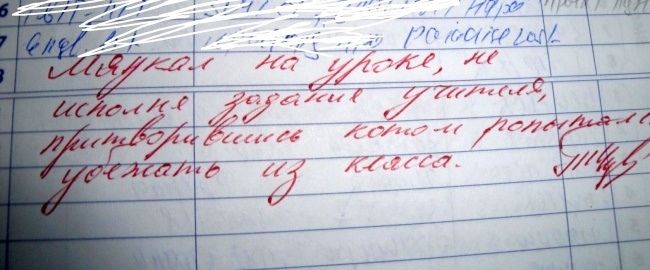 Мяукал на уроке, не
исполня задание учителя,
притворившись котом, попытался
убежать из класса.